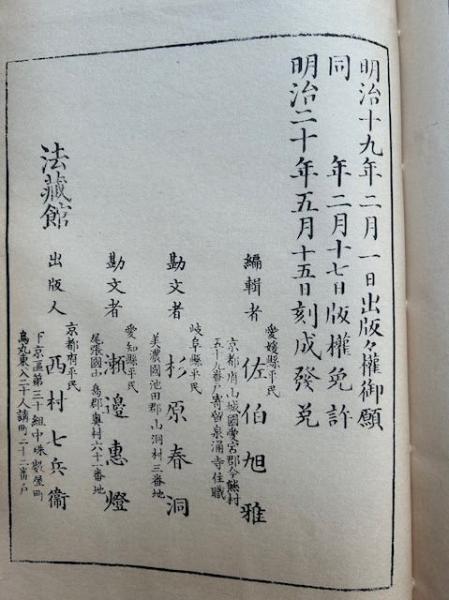 明治十九年二月一日出版々權御願
同　　年二月十七日版權免許
明治二十年五月十五日刻成發兌
愛媛縣平民
編輯者　佐伯旭雅
京都府山城國愛宕郡今熊村
五十九番戶寄留泉涌寺住職
岐阜縣平民
勘文者　杉原春洞
美濃國池田郡山洞村三番地
愛知縣平民
勘文者　瀨邊惠燈
尾張國中島郡奥村六十一番地
京都府平民
出版人　西村七兵衞
下京區第三十組中珠數屋町
烏丸東入二十人講町二十二番戶
法藏館